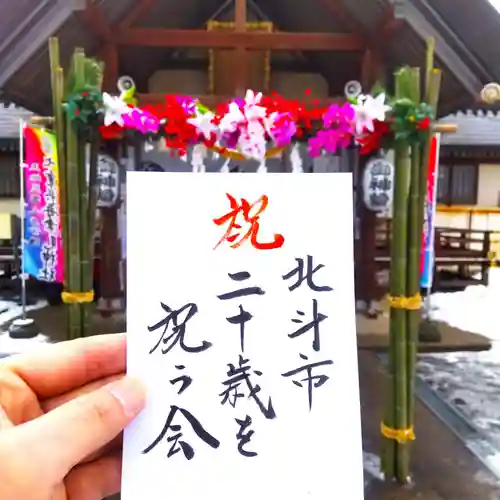 祝
北斗市
二十歳を
祝う会